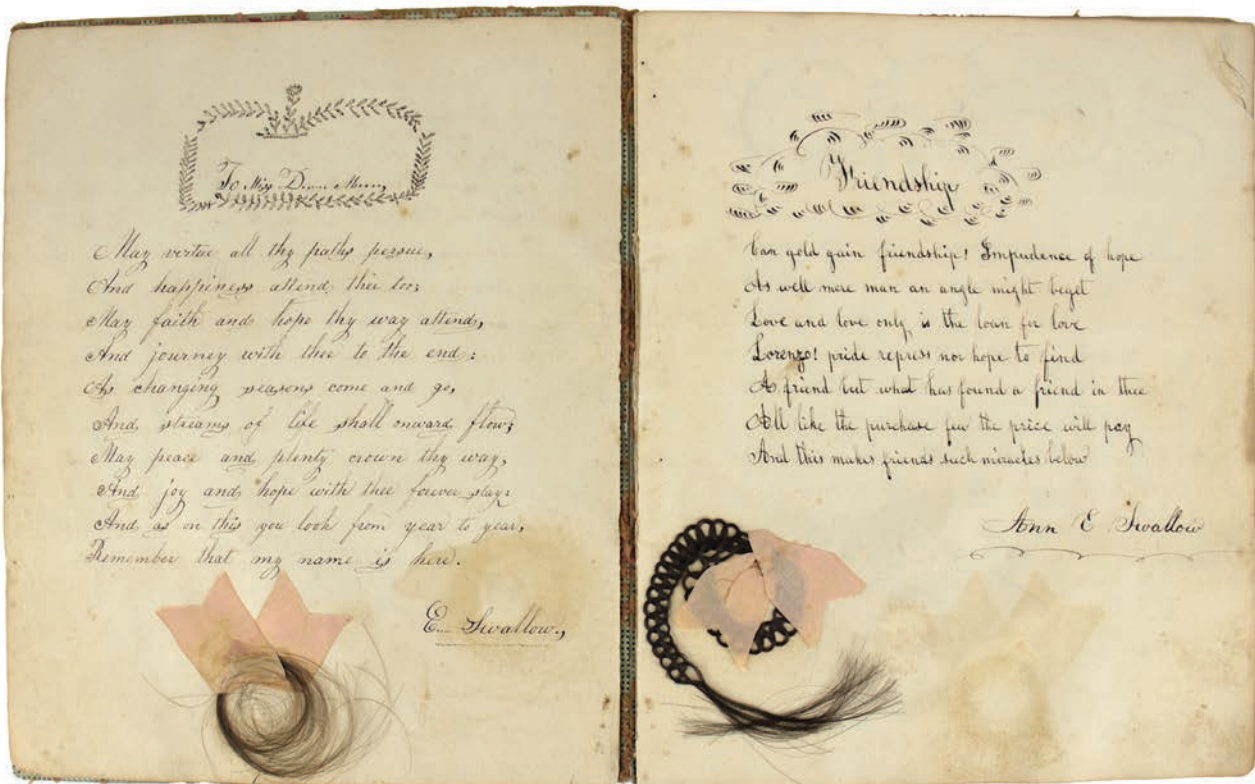 To Miss
May virtue all thy paths persue,
And happiness attend thee too;
May faith and hope thy way attend,
And journey with thee to the end:
As changing seasons come and go,
And streams of life shall onward flow;
May peace and plenty crown thy way,
And joy and hope with thee forever stay:
And as on this you look from year to year,
Remember that my name is here.
E. Swallow.,
Friendship
Can gold gain friendship! Impudence of hope
As well mere man an angle might beget
Love and love only, is the loan for love
Lorenzo! pride repress nor hope to find
A friend but what has found a friend in thee
All like the purchase few the price will pay
And this makes friends such miracles below
Ann E Swallow